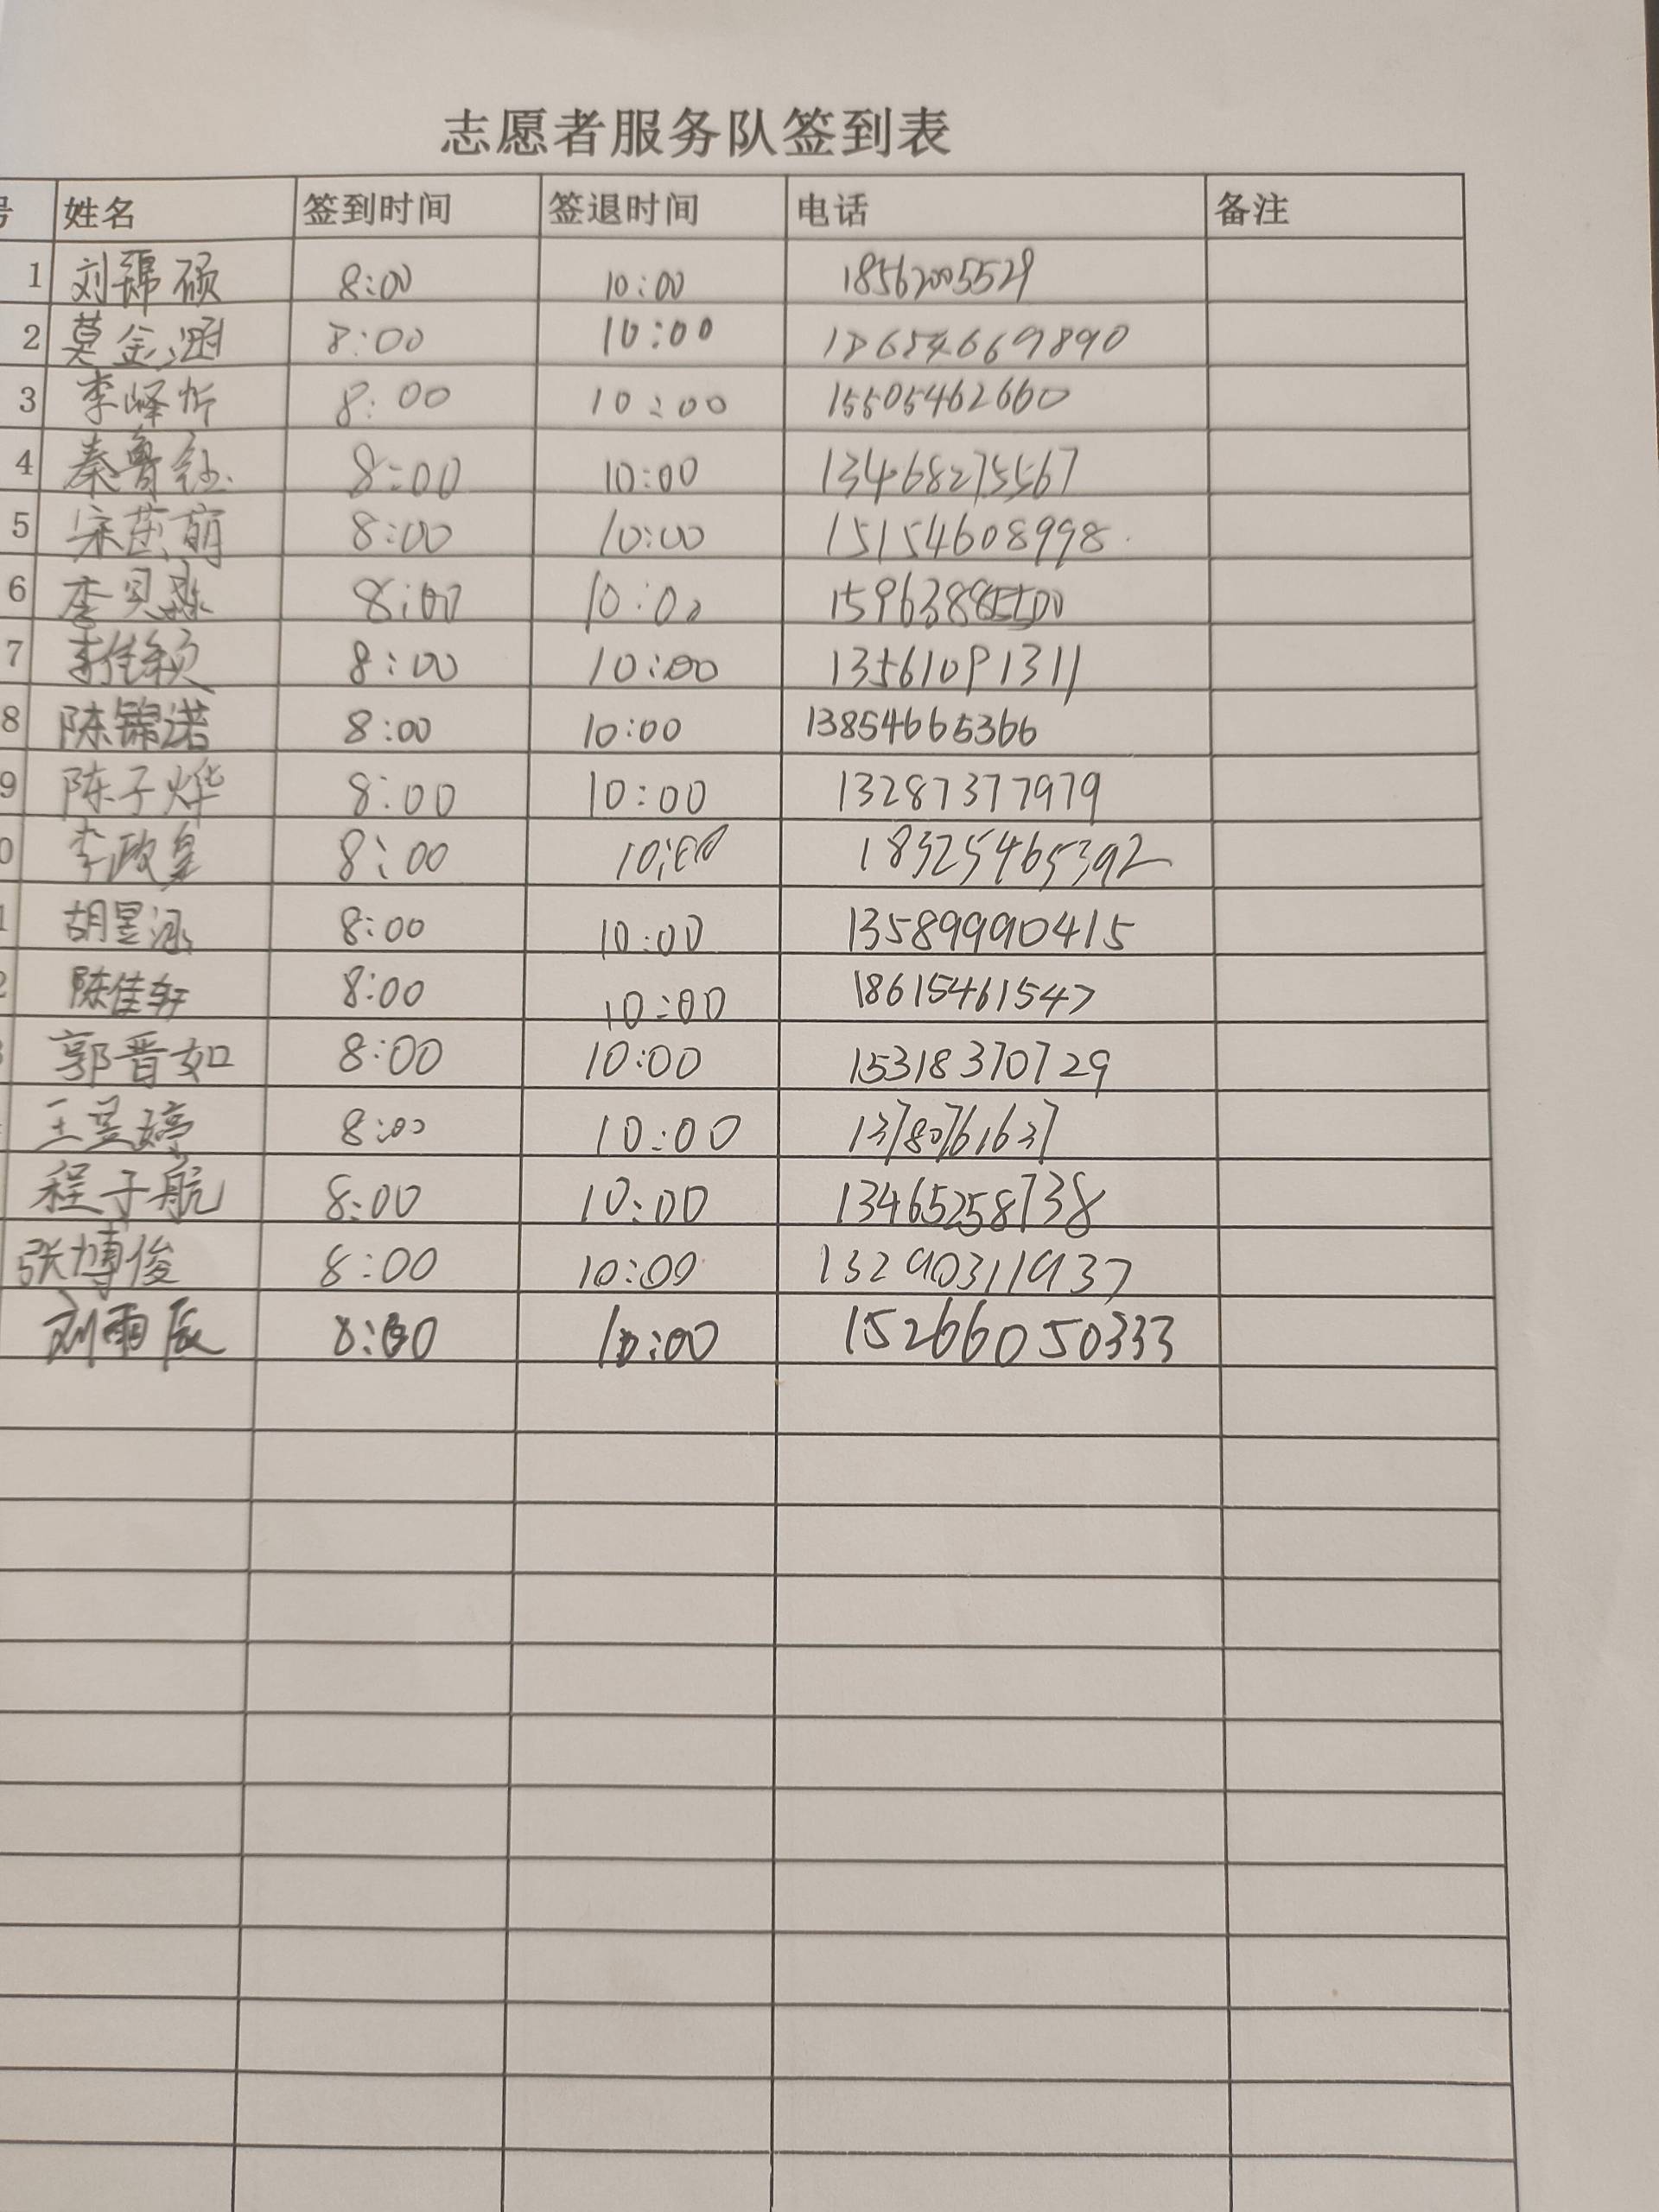 志愿者服务队签到表
号 姓名 签到时间 签退时间 电话 备注
1 刘锦硕 8:00 10:00 18562005529
2 莫金涵 8:00 10:00 18654669890
3 李峄忻 8:00 10:00 15505462660
4 秦鲁钰 8:00 10:00 13468275567
5 宋茁萌 8:00 10:00 15154608998
6 李贝 8:00 10:00 15963885500
7 李佳颖 8:00 10:00 13561091311
8 陈锦诺 8:00 10:00 13854665366
9 陈子烨 8:00 10:00 13287377979
0 李政皇 8:00 10:00 18325465392
1 胡昱泳 8:00 10:00 13589990415
2 陈佳轩 8:00 10:00 18615461547
郭晋如 8:00 10:00 15318370729
王昱婷 8:00 10:00 13780761637
程子航 8:00 10:00 13465258738
张博俊 8:00 10:00 13290311937
刘雨辰 8:00 10:00 15266050333